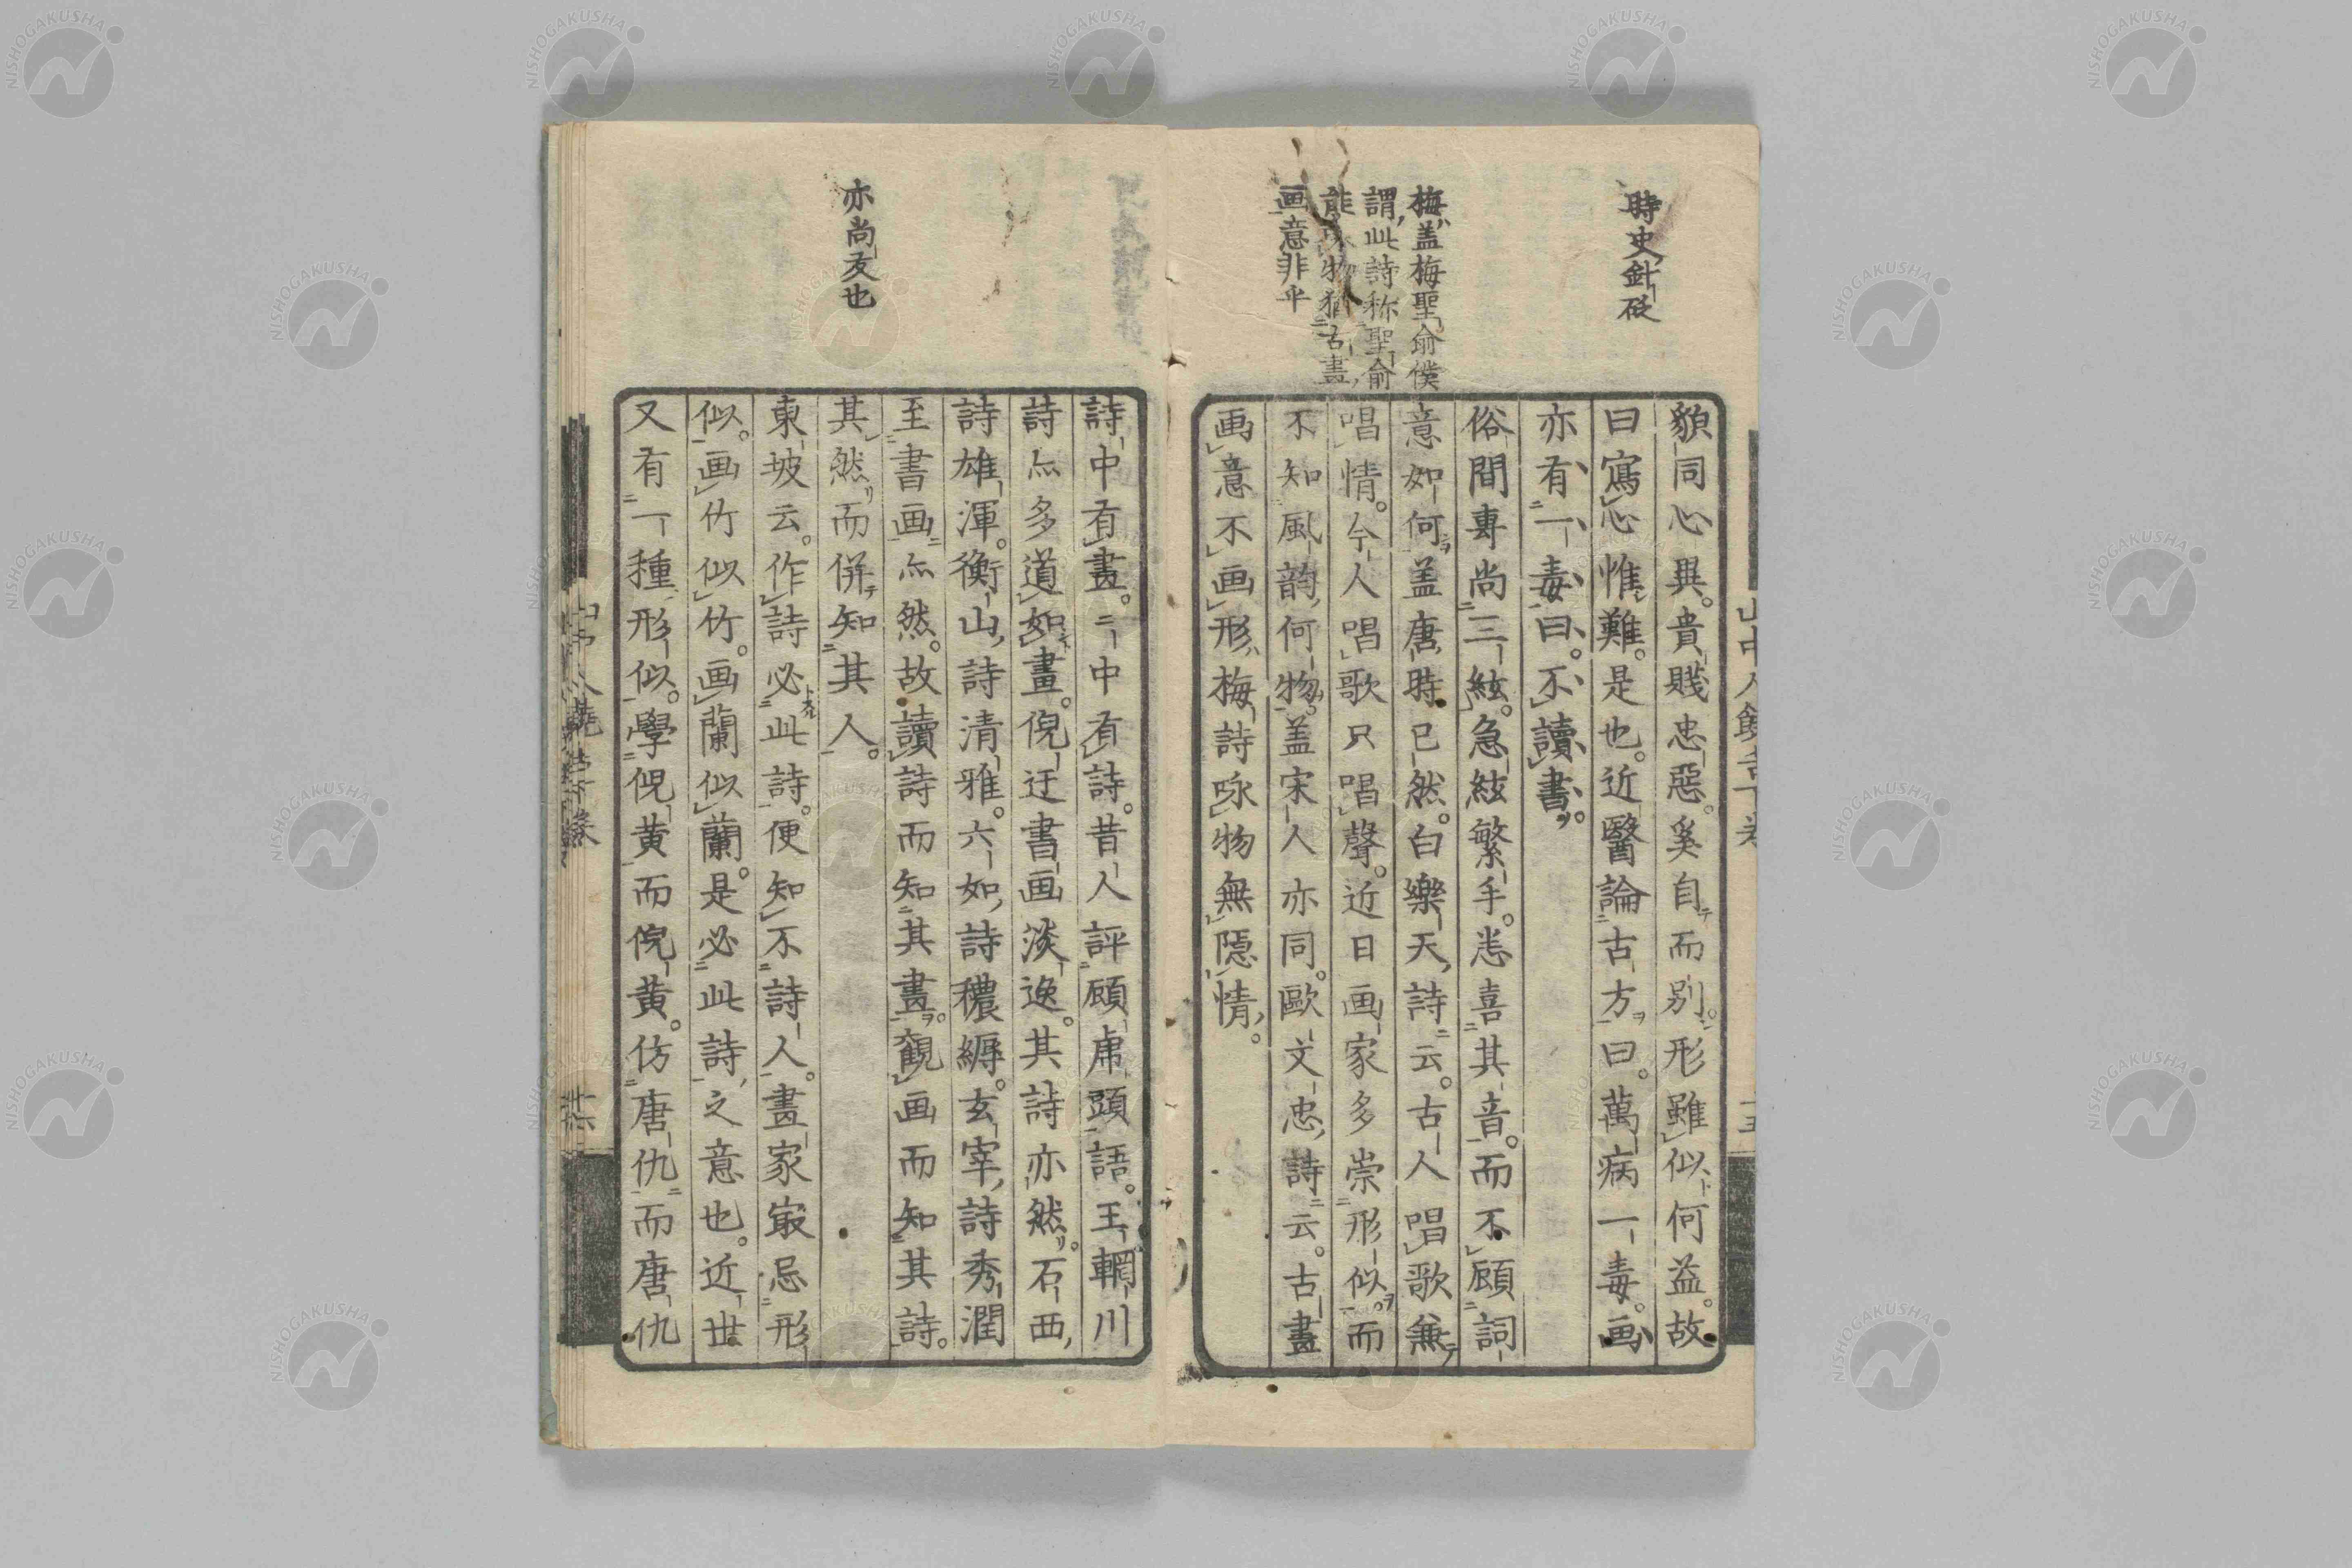 時史針砭
梅蓋梅聖俞僕
謂此詩称聖俞
能詠物猶古畫
画意非乎
貌同心異。貴賎忠惡。奚自而別。形雖似何益。故
曰寫心惟難。是也。近醫論古方曰。萬病一毒。画
亦有一毒曰。不讀書。
俗間専尚三絃。急絃繁手。恙喜其音。而不顧詞
意如何。盖唐時已然。白樂天詩云。古人唱歌兼
唱情。今人唱歌只唱聲。近日画家多崇形似。而
不知風韵何物。盖宋人亦同。歐文忠詩云。古畫
画意不画形梅詩咏物無隱情。
亦尚友也
詩中有畫。画中有詩。昔人評顧虎頭語。王輞川
詩亦多道如畫。倪迂書画淡逸。其詩亦然。石西
詩雄渾。衡山詩清雅。六如詩穠縟。玄宰詩秀潤
至書画亦然。故讀詩而知其畫。観画而知其詩。
其然而併知其人。
東坡云。作詩必此詩。便知不詩人。畫家㝡忌形
似。画竹似竹。画蘭似蘭。是必此詩之意也。近世
又有一種形似。學倪黄而倪黄。仿唐仇而唐仇
NISHOGAKUSHA